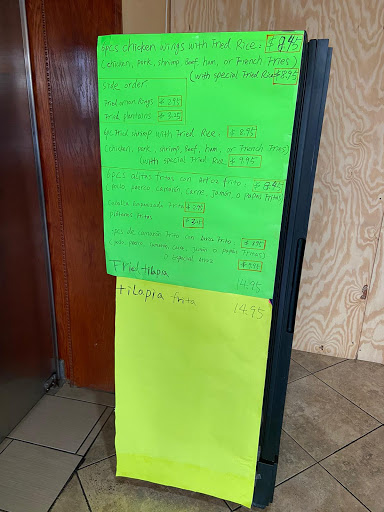 6pcs chicken wings with Fried Rice:
(chicken, pork, shrimp, beef, ham, or French Fries)
(with special Fried Rice $8.95
side order
Fried onion Rings $2.95
Fried plantains $3.25
6pcs Fried shrimp with Fried Rice: $8.95
(chicken, pork, shrimp, beef, ham, or French Fries)
(with special Fried Rice $9.95
6pcs alitas fritas con arroz frito:
(pollo, puerco, camarón, carne, jamón o papas fritas)
Frita $2.95
platanos fritos
6pcs de camarón frito con arroz frito:
(pollo, puerco, camarón, carne, jamón o papas fritas)
especial
Fried tilapia 14.95
tilapia frita 14.95